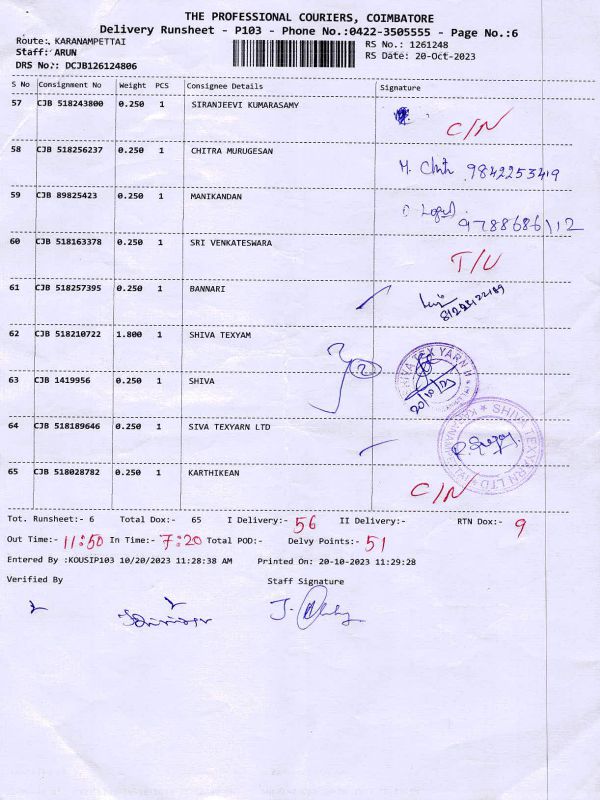 THE PROFESSIONAL COURIERS, COIMBATORE
Delivery Runsheet - P103 - Phone No.:0422-3505555 - Page No.:6
Route: KARANAMPETTAI
Staff: ARUN
DRS No.: DCJB126124806
RS No.: 1261248
RS Date: 20-Oct-2023
S No Consignment No Weight PCS Consignee Details Signature
57 CJB 518243800 0.250 1 SIRANJEEVI KUMARASAMY C/N
58 CJB 518256237 0.250 1 CHITRA MURUGESAN 9842253419
59 CJB 89825423 0.250 1 MANIKANDAN 9788686112
60 CJB 518163378 0.250 1 SRI VENKATESWARA T/U
61 CJB 518257395 0.250 1 BANNARI
62 CJB 518210722 1.800 1 SHIVA TEXYAM
63 CJB 1419956 0.250 1 SHIVA 20/10/23
64 CJB 518189646 0.250 1 SIVA TEXYARN LTD
SHIVA TEXYARN LTD
65 CJB 518028782 0.250 1 KARTHIKEAN C/N
Tot. Runsheet:- 6 Total Dox:- 65 I Delivery:- 56 II Delivery:- RTN Dox:- 9
Out Time:- 11:50 In Time:- 7:20 Total POD:- Delvy Points:- 51
Entered By :KOUSIP103 10/20/2023 11:28:38 AM Printed On: 20-10-2023 11:29:28
Verified By Staff Signature